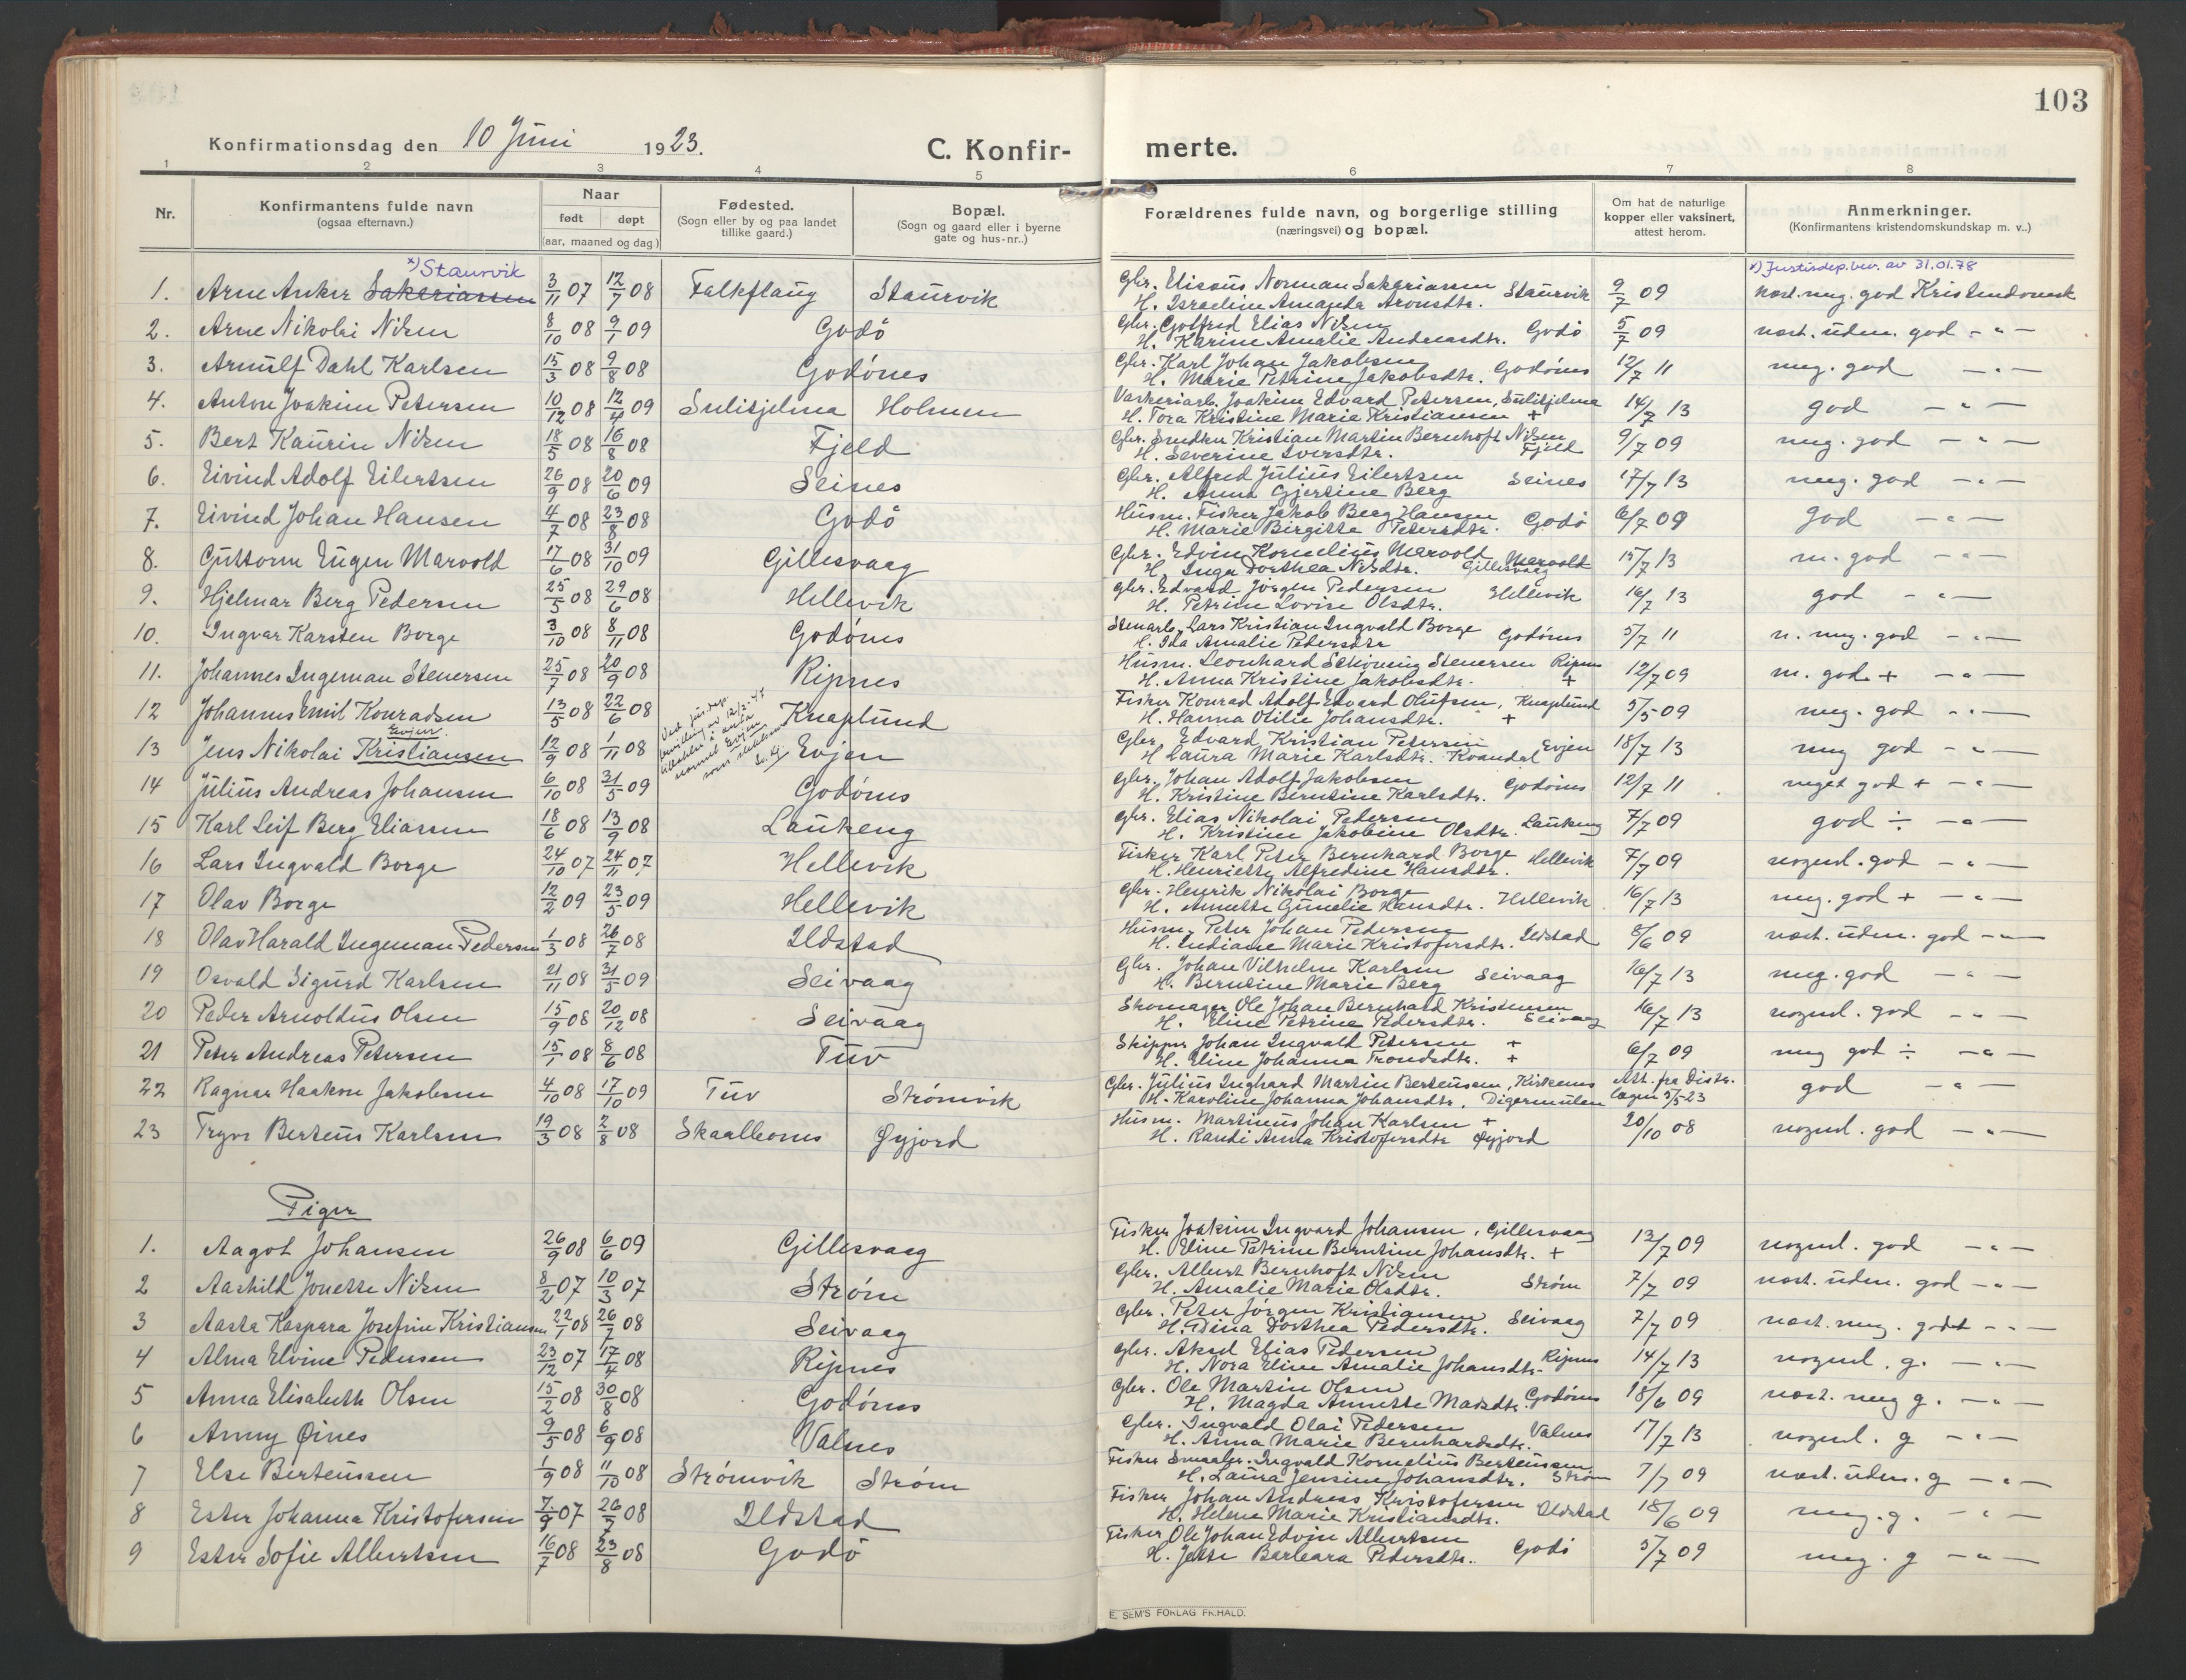 103
Konfirmationsdag den 10 Juni 1923.
C. Konfir- merte.
1 2 3 4 5 6 7 8
Nr.
Konfirmantens fulde navn
(ogsaa efternavn.)
Naar
født døpt
(aar, maaned og dag.)
Fødested.
(Sogn eller by og paa landet
tillike gaard.)
Bopæl.
(Sogn og gaard eller i byerne
gate og hus-nr..)
Forældrenes fulde navn, og borgerlige stilling
(næringsvei) og bopæl.
Om hat de naturlige
kopper eller vaksinert,
attest herom.
Anmerkninger.
(Konfirmantens kristendomskundskap m. v..)
x) Staurvik
x) Justisdep. bev. av 31.01.78
1. Arne Anker Sakariassen 3/11 07 12/7 08 Falkflaug Staurvik Gbr. Elisæus Norman Sakariassen Staurvik 9/7 09 næst. meg. god Kristendomsk
H. Israeline Amanda Aronsdtr.
2. Arne Nikolai Nilsen 8/10 08 9/1 09 Godö Gbr. Golfred Elias Nilsen Godö 5/7 09 næst. üden. god - " -
H. Karine Amalie Andreasdtr.
3. Arnülf Dahl Karlsen 15/3 08 9/8 08 Godönes Gbr. Karl Johan Jakobsen Godönes 12/7 11 meg. god - " -
H. Marie Petrine Jakobsdtr.
4. Anton Joakim Petersen 10/12 08 12/4 09 Sulitjelma Holmen Værkeriarb. Joakim Edvard Petersen, Sulitjelma 14/7 13 god - " -
H. Tora Kristine Marie Kristiansen +
5. Bert Kaurin Nilsen 18/5 08 16/8 08 Fjeld Gbr. Smeden Kristian Martin Bernhoft Nilsen 9/7 09 meg. god - " -
H. Severine Iversdtr. Fjeld
6. Eivind Adolf Eilertsen 26/9 08 20/6 09 Seines Gbr. Alfred Julius Eilertsen Seines 17/7 13 meg. god - " -
H. Anna Gjertine Berg
7. Eivind Johan Hansen 4/7 08 23/8 08 Godö Husm. Fisker Jakob Berg Hansen Godö 6/7 09 god - " -
H. Marie Birgitte Petersdtr.
8. Guttorm Eugen Marvold 17/6 08 31/10 09 Gillesvaag Gbr. Edvin Kornelius Marvold 15/7 13 m. god - " -
H. Inga Dorthea Nilsdtr. Gillesvaag
9. Hjelmar Berg Pedersen 25/5 08 29/6 08 Hellevik Gbr. Edvard Jörgen Pedersen Hellevik 16/7 13 god - " -
H. Petrine Lovise Olsdtr.
10. Ingvar Karsten Borge 3/10 08 8/11 08 Godönes Stenarb. Lars Kristian Ingvald Borge Godönes 5/7 11 n. meg. god - " -
H. Ida Amalie Pedersdtr
11. Johannes Ingeman Stenersen 25/7 08 20/9 08 Ripnes Husm. Leonhard Schöning Stenersen Ripnes 12/7 09 m. god + - " -
H. Anna Kristine Jakobsdtr. +
12 Johannes Emil Konradsen 13/5 08 22/6 08 Knaplund Fisker Konrad Adolf Edvard Olufsen, Knaplund 5/5 09 meg. god - " -
H. Hanna Otilie Johansdtr. +
Evjen
Ved jus. dep. bevilling av 12/2-47 tilladelse i anta navnet Evjen som slektsnavn
13 Jens Nikolai Kristiansen 12/9 08 1/11 08 Evjen Gbr. Edvard Kristian Petersen Evjen 18/7 13 meg god - " -
H Laura Marie Karlsdtr. Kvandal
14 Julius Andreas Johansen 6/10 08 31/5 09 Godönes Gbr. Johan Adolf Jakobsen Godönes 12/7 11 meget god + - " -
H. Kristine Berntine Karlsdtr.
15 Karl Leif Berg Eliassen 18/6 08 13/9 08 Laukeng Gbr. Elias Nikolai Pedersen Laukeng 7/7 09 god ÷ - " -
H. Kristine Jakobine Olsdtr.
16 Lars Ingvald Borge 24/10 07 24/11 07 Hellevik Fisker Karl Peter Bernhard Borge Hellevik 7/7 09 nogenl. god - " -
H. Henriette Alfredine Hansdtr.
17 Olav Borge 12/2 09 23/5 09 Hellevik Gbr. Henrik Nikolai Borge Hellevik 16/7 13 meg. god + - " -
H. Annette Gunelie Hansdtr.
18 Olav Harald Ingeman Pedersen 1/3 08 26/7 08 Ildstad Husm. Peter Johan Pedersen Ildstad 8/6 09 næst. üden. god - " -
H. Indiane Marie Kristofersdtr.
19 Osvald Sigurd Karlsen 21/11 08 31/5 09 Seivaag Gbr. Johan Vilhelm Karlsen Seivaag 16/7 13 meg. god - " -
H. Berntine Marie Berg
20 Peder Arnoldus Olsen 15/9 08 20/12 08 Seivaag Skomager Ole Johan Bernhard Kristensen 16/7 13 nogenl. god - " -
H. Eline Petrine Pedersdtr. Seivaag
21 Peter Andreas Petersen 15/1 08 8/6 08 Tuv Skipper Johan Ingvald Petersen + 6/7 09 meg god ÷ - " -
H. Eline Johanna Trondsdtr. +
22 Ragnar Haakon Jakobsen 4/10 08 17/10 09 Tuv Strömvik Gbr. Julius Inghard Martin Berteussen, Kirkenes Att. fra Distr. god - " -
H. Karoline Johanna Johansdtr. Digermulen lægen 5/5-23
23 Trygve Berteus Karlsen 19/3 08 2/8 08 Skaalbones Øyjord Husm. Martinus Johan Karlsen + 20/10 08 nogenl. god - " -
H. Randi Anna Kristofersdtr Øyjord
Piger
1. Aagot Johansen 26/9 08 6/6 09 Gillesvaag Fisker Joakim Ingvard Johansen, Gillesvaag 12/7 09 nogenl. god - " -
H. Eline Petrine Berntine Johansdtr. +
2 Aashild Jonette Nilsen 8/2 07 10/3 07 Ström Gbr. Albert Bernhoft Nilsen Ström 7/7 09 næst. üden. god - " -
H. Amalie Marie Olsdtr.
3 Aasta Kaspara Josefine Kristiansen 22/1 08 26/7 08 Seivaag Gbr. Peter Jörgen Kristiansen Seivaag 7/7 09 næst. meg. godt - " -
H. Dina Dorthea Pedersdtr.
4 Alma Elvine Pedersen 23/12 07 17/4 08 Ripnes Gbr. Aksel Elias Pedersen Ripnes 14/7 13 nogenl. g. - " -
H. Nora Eline Amalie Johansdtr.
5 Anna Elisabeth Olsen 15/2 08 30/8 08 Godönes Gbr. Ole Martin Olsen Godönes 18/6 09 næst. meg g. - " -
H. Magda Annette Madsdtr.
6 Anny Øines 9/5 08 6/9 08 Valnes Gbr. Ingvald Olai Pedersen Valnes 17/7 13 nogenl. g - " -
H. Anna Marie Bernhardsdtr.
7 Else Berteussen 1/9 08 11/10 08 Strömvik Ström Fisker Smaabr. Ingvald Kornelius Berteussen 7/7 09 næst. üden. g - " -
H. Laura Jensine Johansdtr. Ström
8 Ester Johanna Kristofersen 7/9 07 26/7 08 Ildstad Fisker Johan Andreas Kristofersen Ildstad 18/6 09 meg. g. - " -
H. Helene Marie Kristiansdtr.
9 Ester Sofie Albertsen 16/7 08 23/8 08 Godö Fisker Ole Johan Edvin Albertsen Godö 5/7 09 meg. g - " -
H. Jette Barbara Pedersdtr.
E. SEM'S FORLAG FR.HALD.